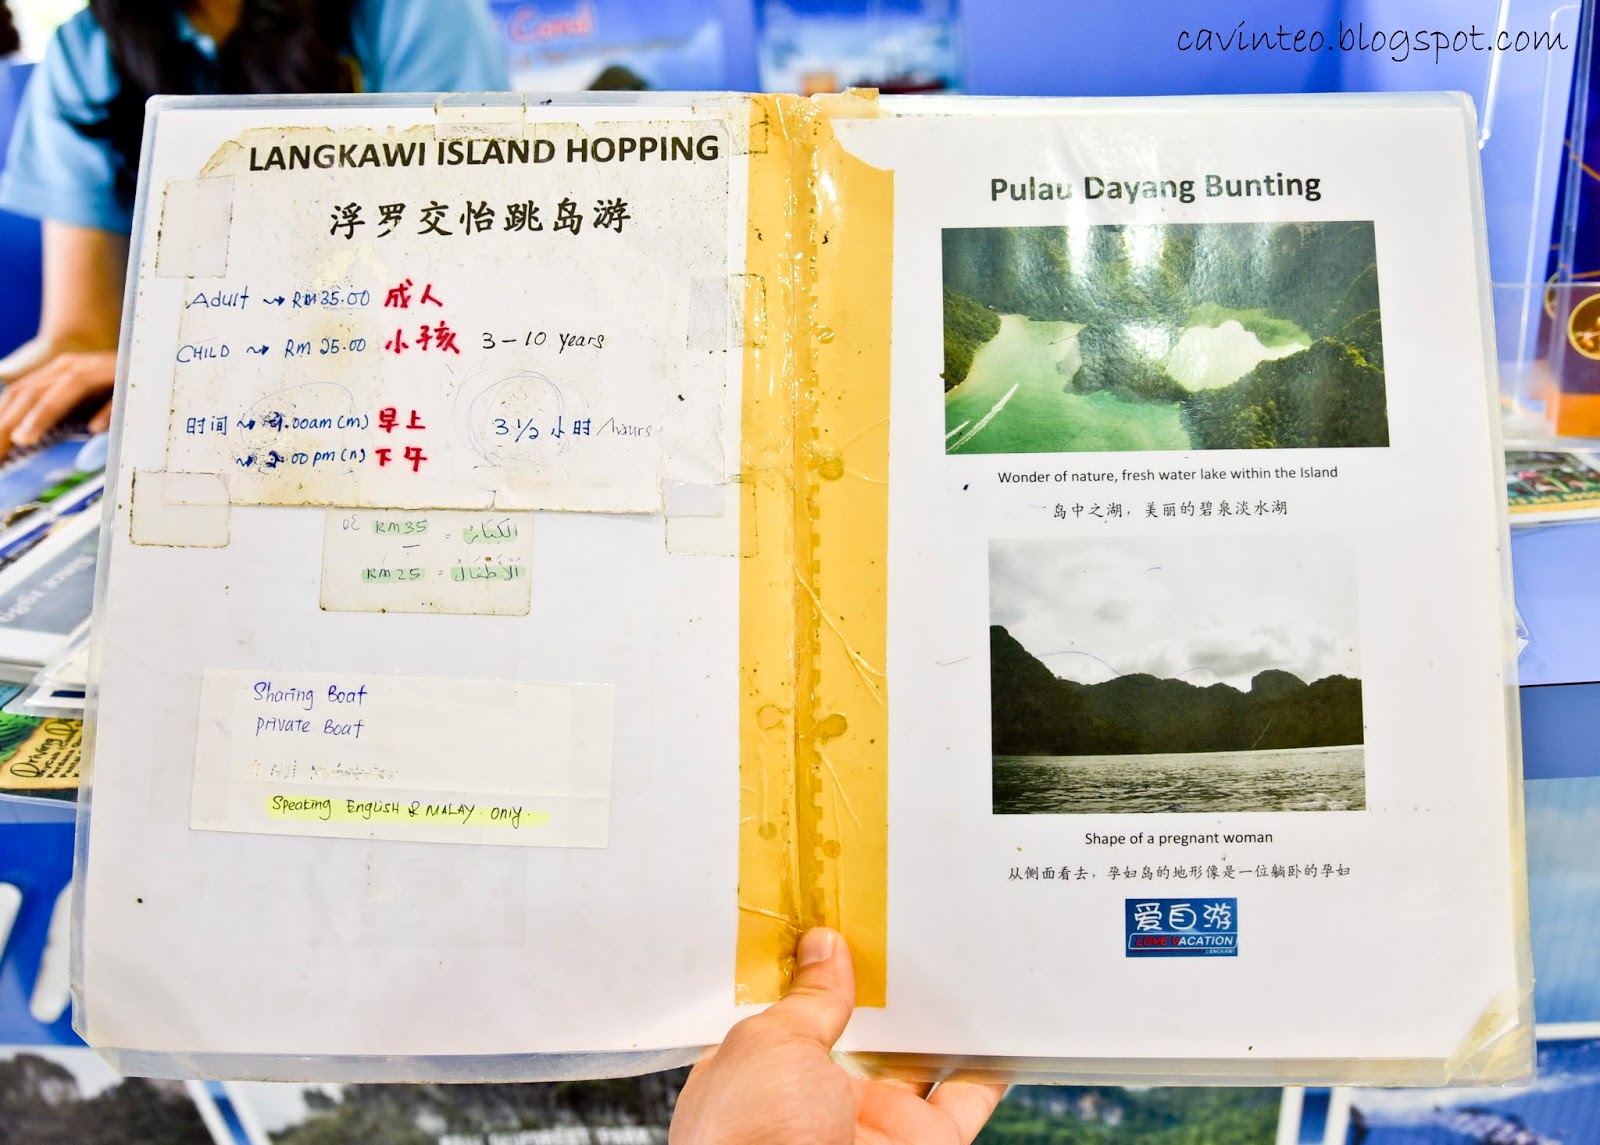 cavinteo.blogspot.com
LANGKAWI ISLAND HOPPING
浮罗交怡跳岛游
Adult ~> RM 35.00 成人
CHILD ~> RM 25.00 小子孩 3-10 years
时间 ~> 9.00am (m) 早上
~> 2.00pm (n) 下午
3 1/2 小时/hours
RM35 = الكبار
RM25 = الأطفال
Sharing Boat
Private Boat
Speaking English & MALAY only.
Pulau Dayang Bunting
Wonder of nature, fresh water lake within the Island
岛中之湖，美丽的碧泉淡水湖
Shape of a pregnant woman
从侧面看去，孕妇岛的地形像是一位躺卧的孕妇
爱自游
LOVE VACATION
LANGKAWI